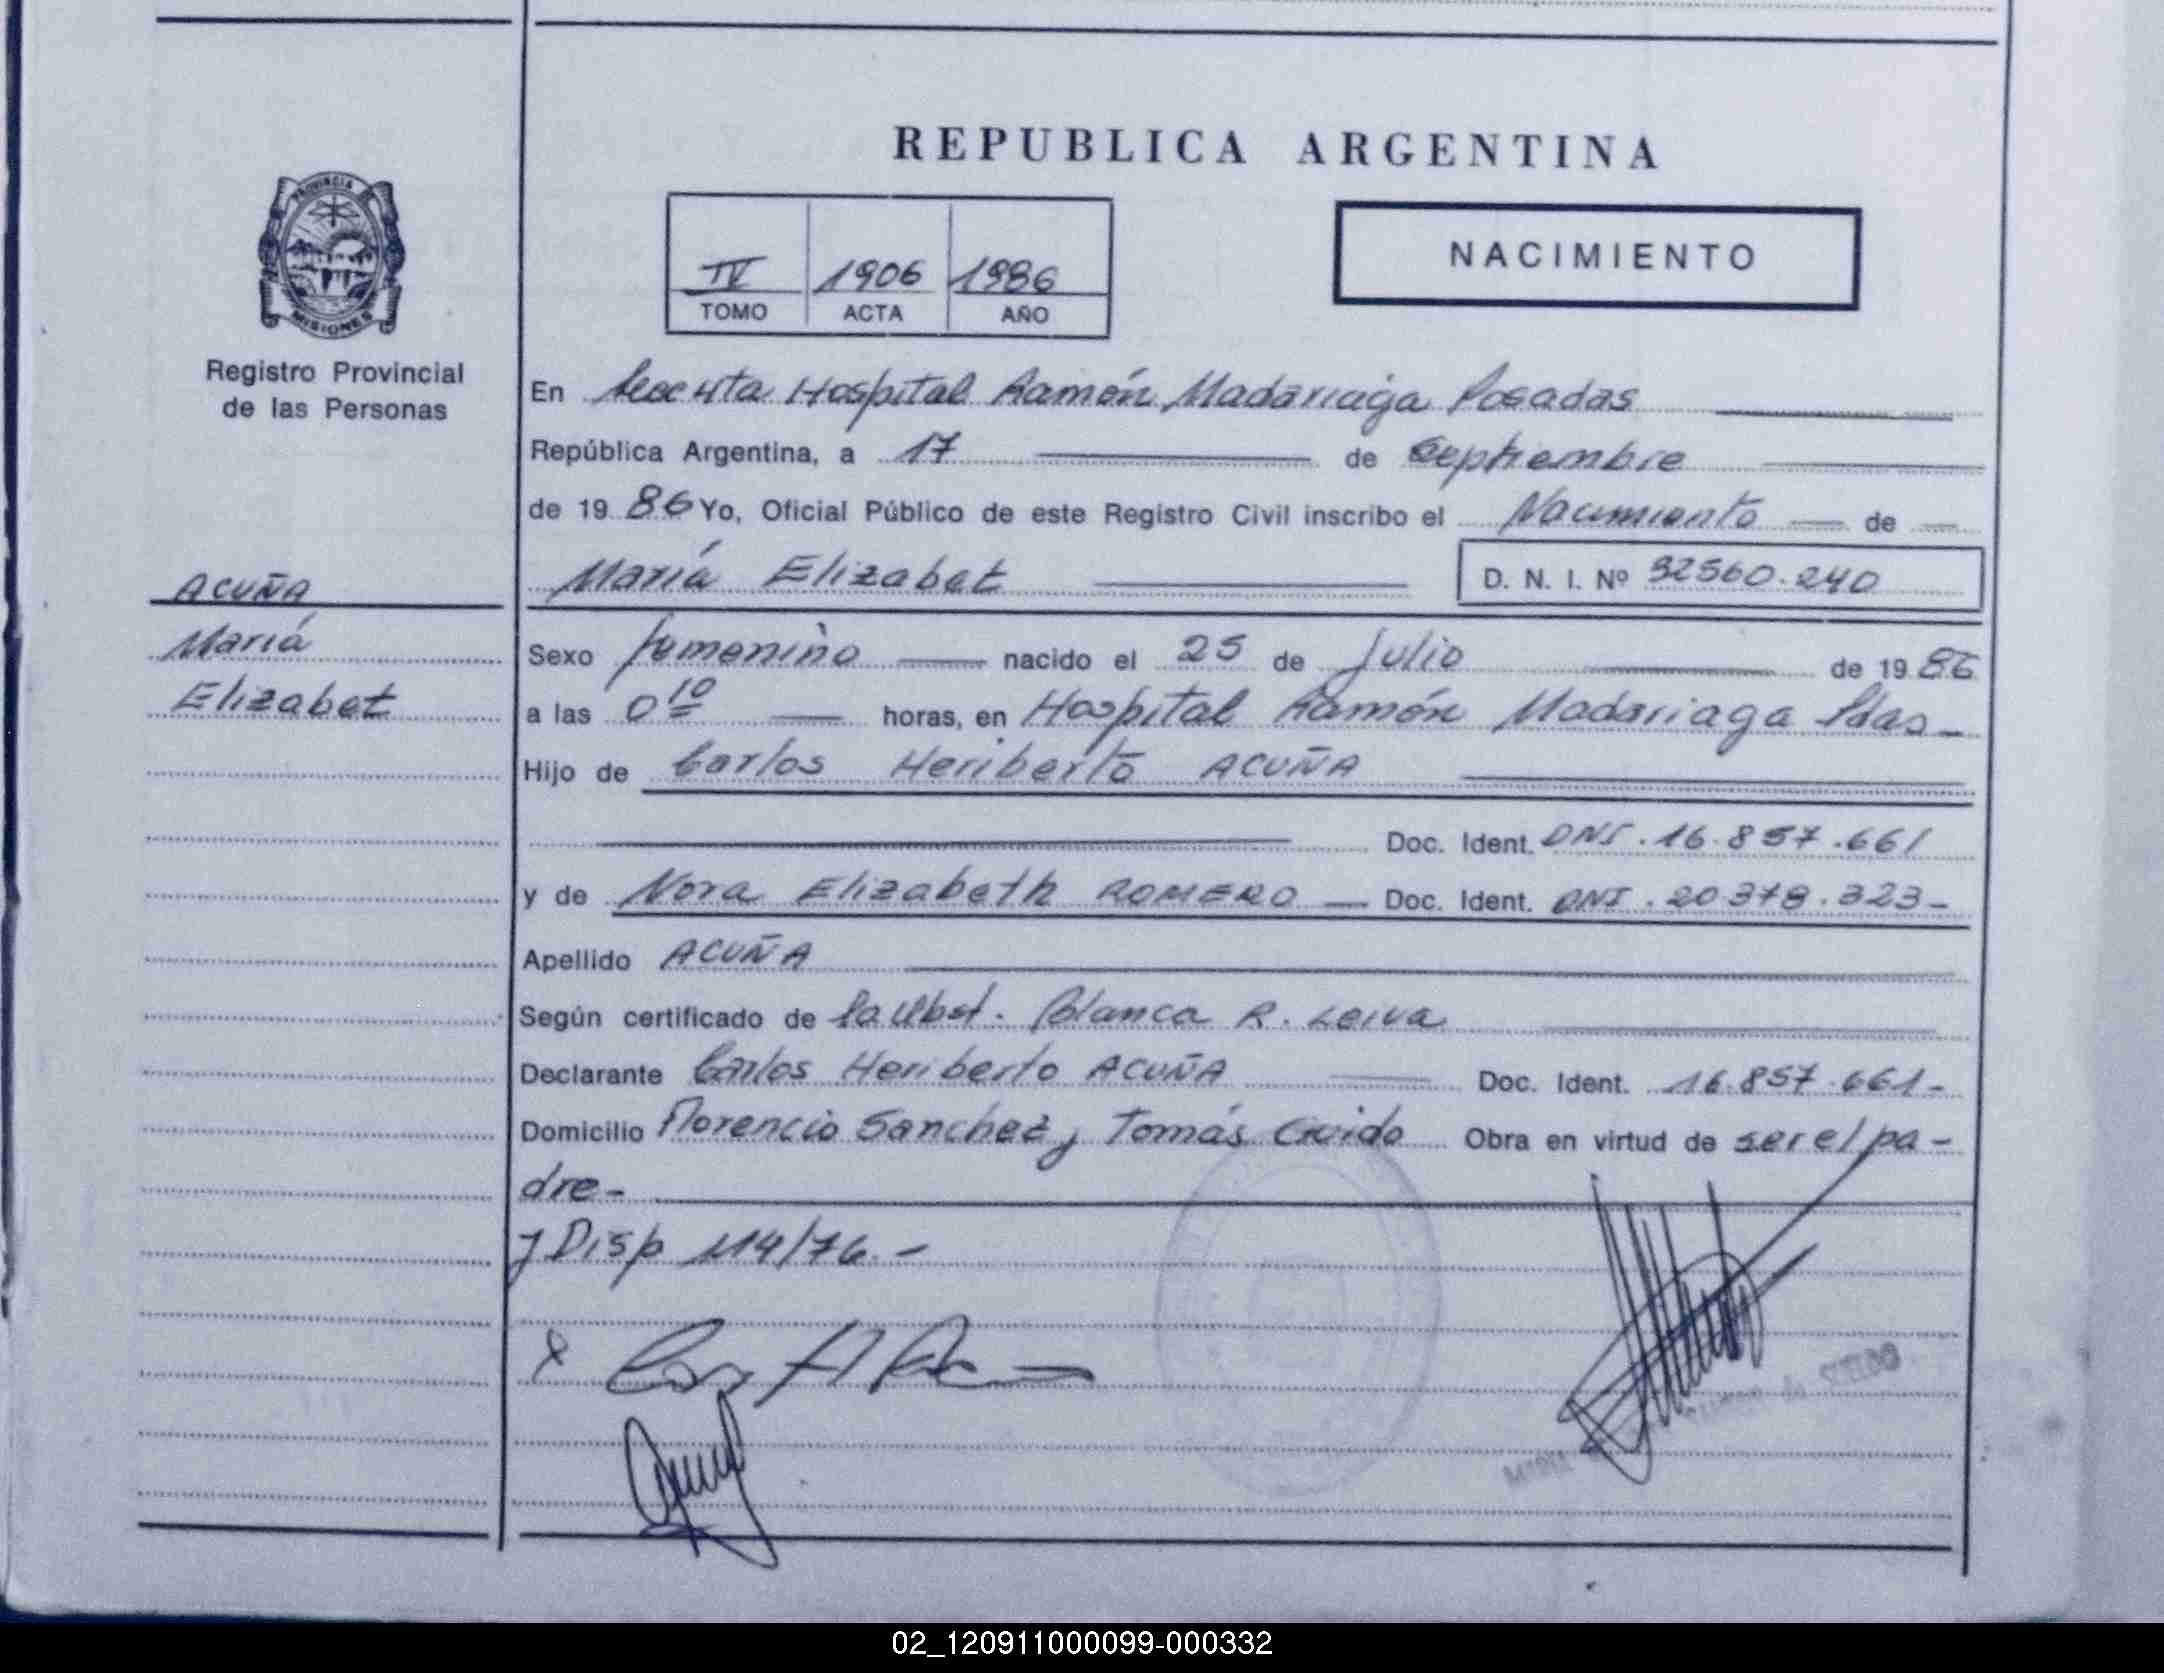 REPUBLICA ARGENTINA
PROVINCIA DE
MISIONES
Registro Provincial
de las Personas
IV 1906 1986
TOMO ACTA AÑO
NACIMIENTO
En Hospital Ramón Madariaga Posadas
República Argentina, a 17 de septiembre
de 19 86 Yo, Oficial Público de este Registro Civil inscribo el Nacimiento de
María Elizabet D. N. I. Nº 32560.240
ACUÑA
María
Elizabet
Sexo femenino nacido el 25 de Julio de 19 86
a las 0 10 horas, en Hospital Ramón Madariaga Pdas
Hijo de Carlos Heriberto ACUÑA
Doc. Ident. DNI. 16.857.661
y de Nora Elizabeth ROMERO Doc. Ident. DNI. 20378.323-
Apellido ACUÑA
Según certificado de la Obst. Blanca R. Leiva
Declarante Carlos Heriberto ACUÑA Doc. Ident. 16.857.661-
Domicilio Florencio Sanchez y Tomás Guido Obra en virtud de ser el pa-
dre-
y Disp 114/76.-
x
de SUELDO
02_120911000099-000332